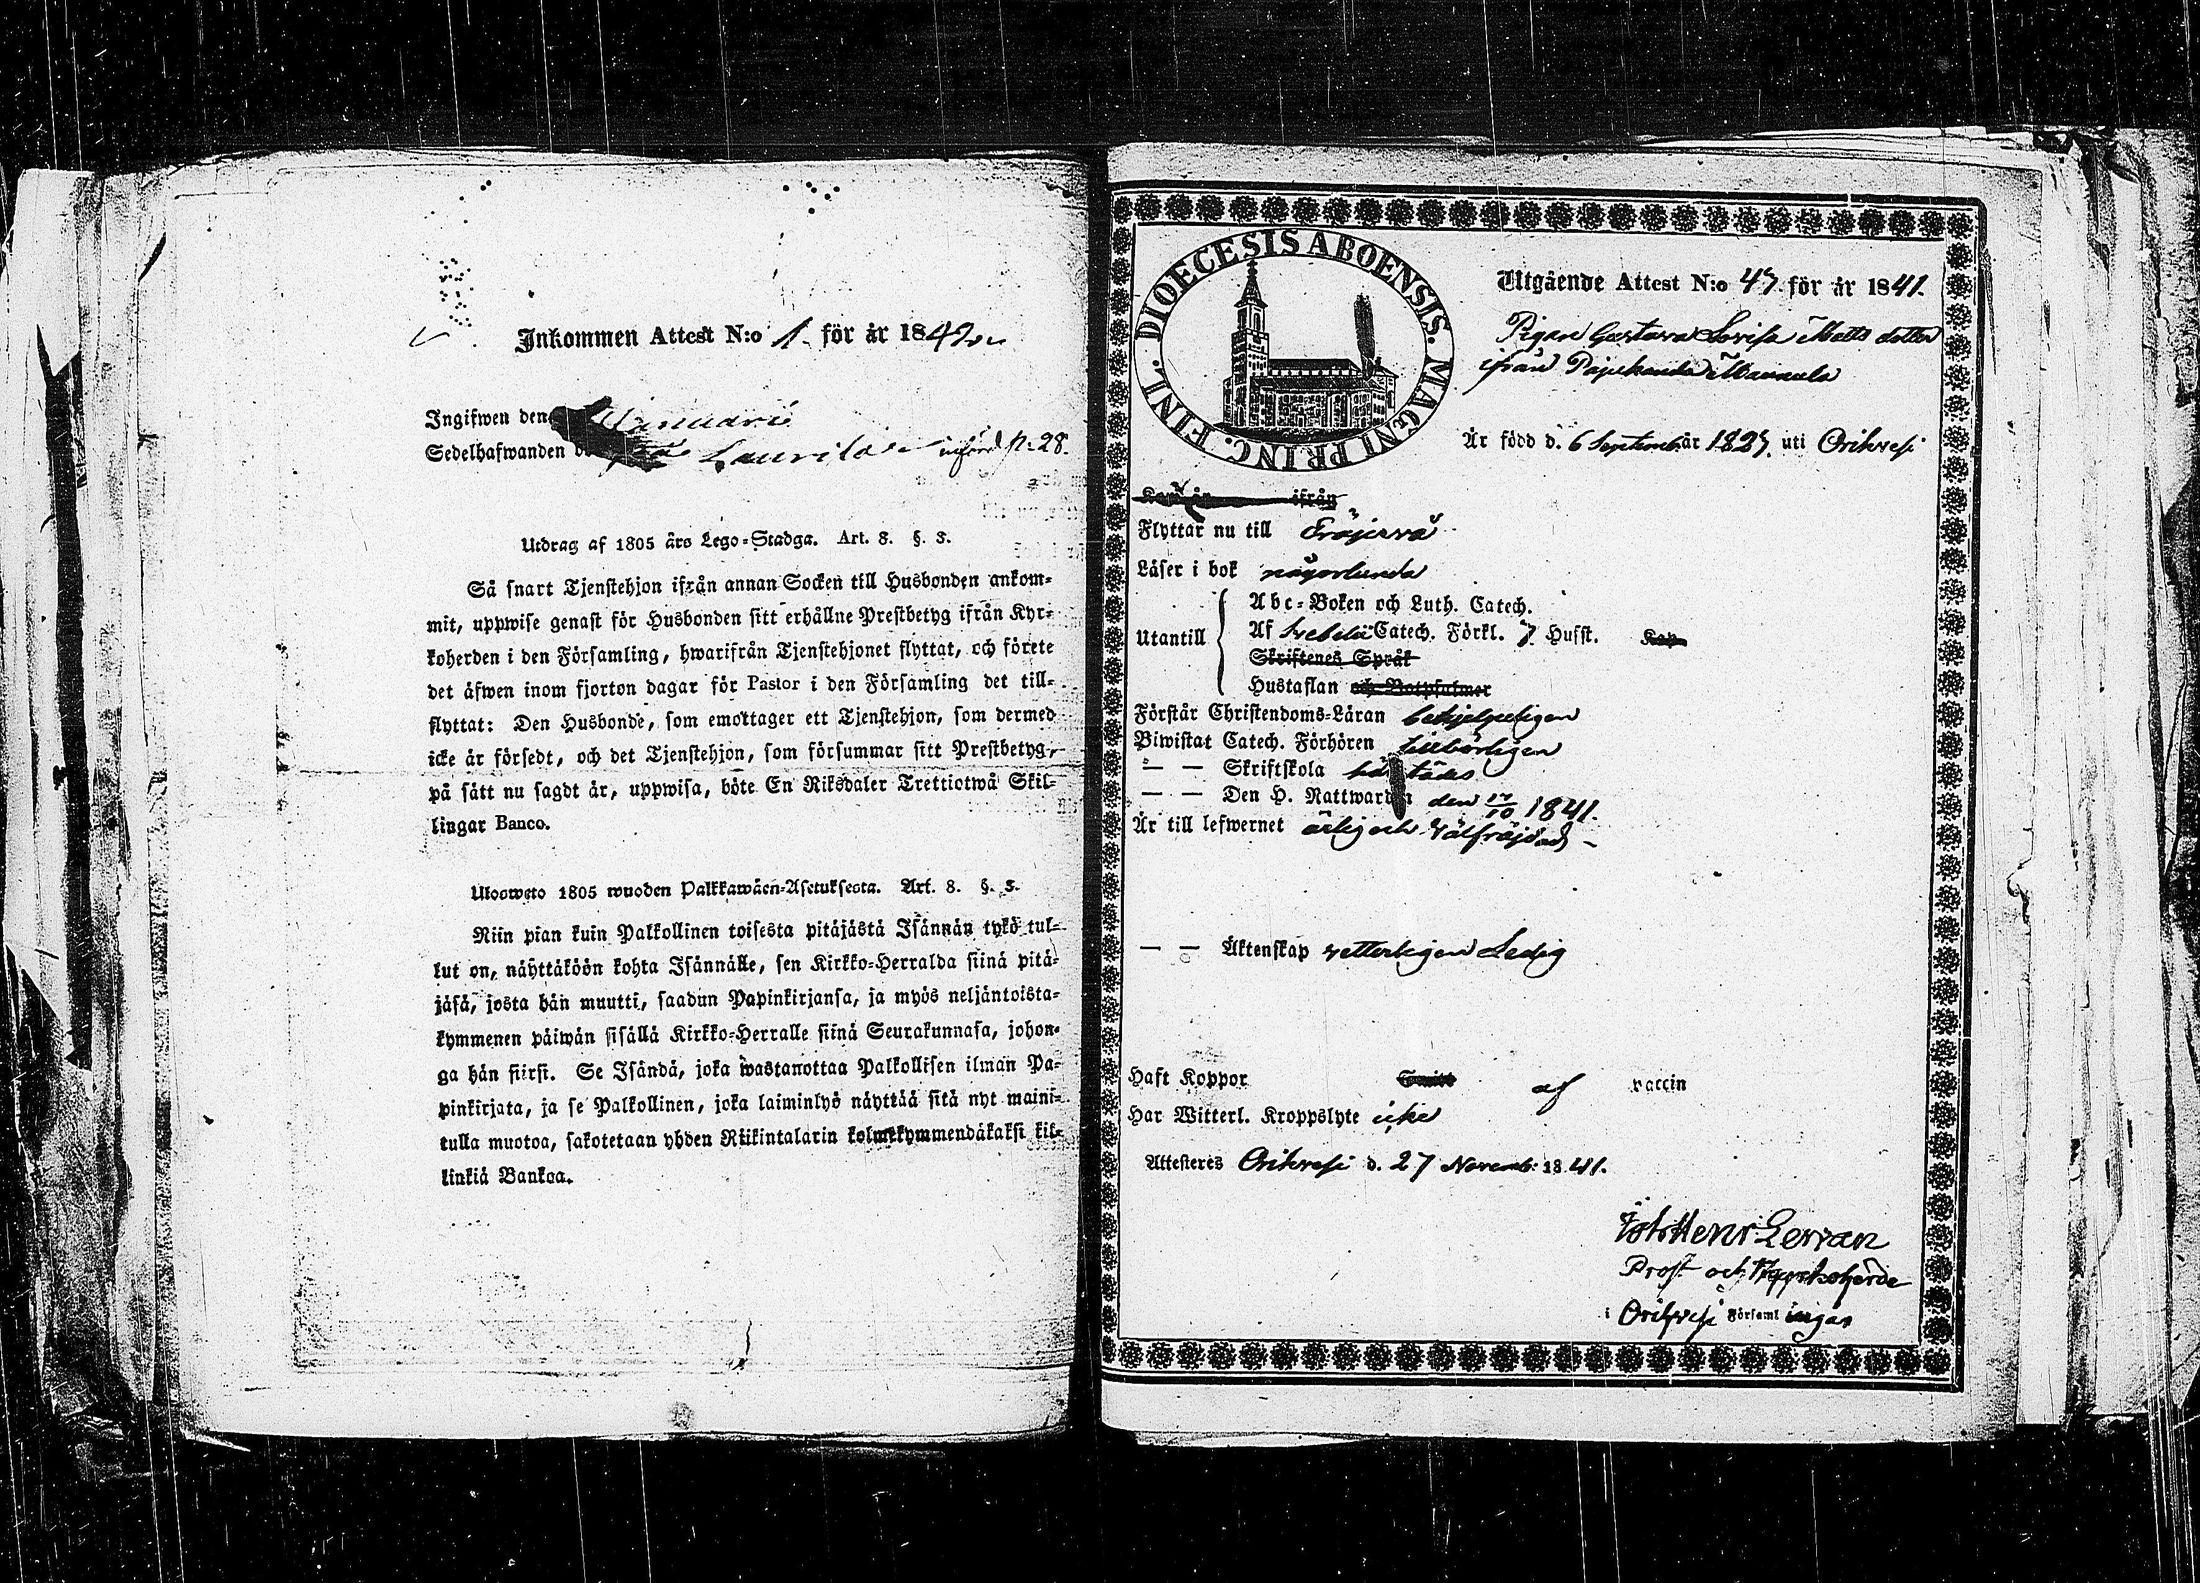 Inkommen Attest N:o 1. för år 1842
Ingifwen den Januarii
Sedelhafwanden Laurila införd p. 28.
Utdrag af 1805 års Lego-Stadga. Art. 8. §. 3.
Så snart Tjenstehjon ifrån annan Socken till Husbonden ankom-
mit, uppwise genast för Husbonden sitt erhållne Prestbetyg ifrån Kyr-
koherden i den Församling, hwarifrån Tjenstehjonet flyttat, och förete
det äfwen inom fjorton dagar för Pastor i den Församling det till-
flyttat: Den Husbonde, som emottager ett Tjenstehjon, som dermed
icke är försedt, och det Tjenstehjon, som försummar sitt Prestbetyg,
på sätt nu sagdt är, uppwisa, böte En Riksdaler Trettiotwå Skil-
lingar Banco.
Ulosweto 1805 wuoden Palkkawäen-Asetuksesta. Art. 8. §. 3.
Niin pian kuin Palkollinen toisesta pitäjästä Isännän tykö tul-
lut on, näyttäköön kohta Isännälle, sen Kirkko-Herralda siinä pitä-
jäsä, josta hän muutti, saadun Papinkirjansa, ja myös neljäntoista-
kymmenen päiwän sisällä Kirkko-Herralle siinä Seurakunnasa, johon-
ga hän siirsi. Se Isändä, joka wastanottaa Palkollisen ilman Pa-
pinkirjata, ja se Palkollinen, joka laiminlyö näyttää sitä nyt maini-
tulla muotoa, sakotetaan yhden Riikintalarin kolmekymmendäkaksi kil-
linkiä Bankoa.
DIOECESIS ABOENSIS. MAGNI PRINC. FINL.
Utgående Attest N:o 47. för år 1841.
Pigan Gustava Lovisa Matts dotter
ifrån Pajukanda Mannula
Är född d. 6 Septemb. år 1827. uti Orihvesi
Kom år ifrån
Flyttar nu till Eräjervi
Läser i bok någorlunda
Utantill
Abc-Boken och Luth. Catech.
Af Svebelii Catech. Förkl. 7 Husst. Kap
Skriftenes Språk
Hustaflan och Botpsalmer
Förstår Christendoms-Läran behjelpeligen
Biwistat Catech. Förhören tillbörligen
— — Skriftskola härstädes
— — Den H. Nattwarden den 17/10 1841.
Är till lefwernet ärlig och välfräjdad
— — Äktenskap vetterligen Ledig
Haft Koppor af vaccin
Har Witterl. Kroppslyte icke
Attesteres Orihvesi d. 27 Novemb: 1841.
Prost och Kyrkoherde
i Orihvesi Församlingar